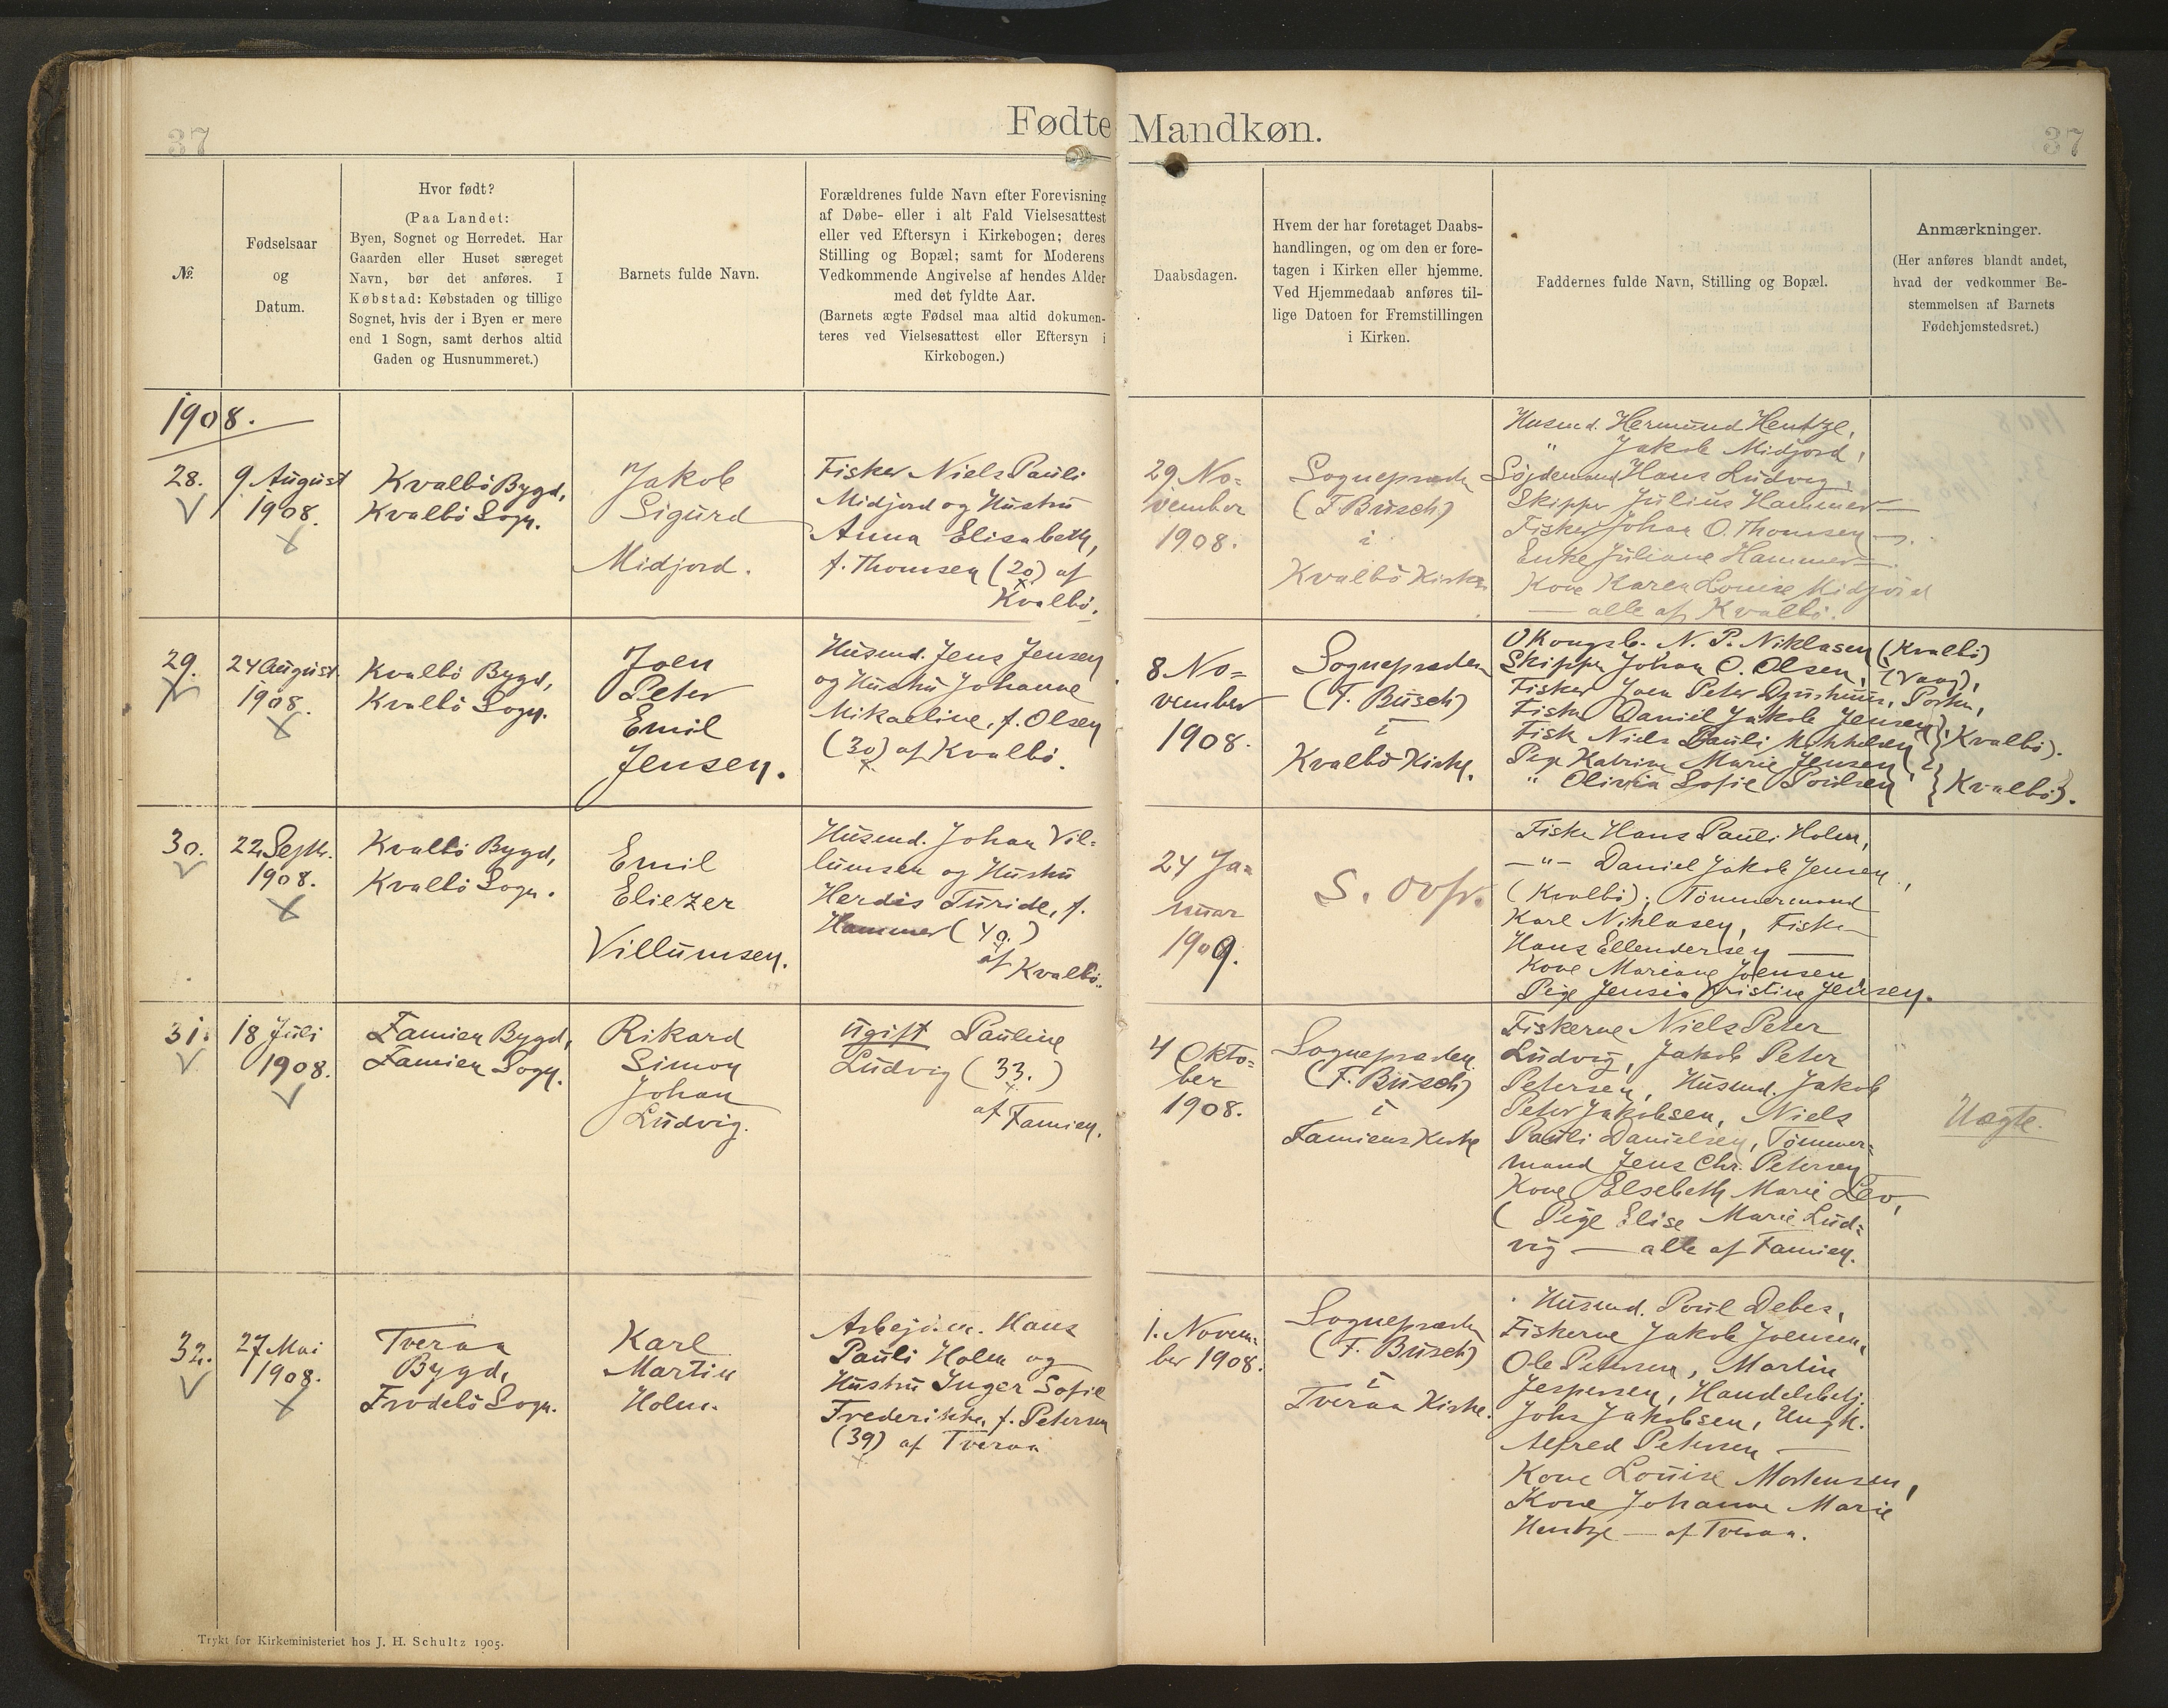 37
Fødte Mandkøn.
37
№.
Fødselsaar
og
Datum.
Hvor født?
(Paa Landet:
Byen, Sognet og Herredet. Har
Gaarden eller Huset særeget
Navn, bør det anføres. I
Købstad: Købstaden og tillige
Sognet, hvis der i Byen er mere
end 1 Sogn, samt derhos altid
Gaden og Husnummeret.)
Barnets fulde Navn.
Forældrenes fulde Navn efter Forevisning
af Døbe- eller i alt Fald Vielsesattest
eller ved Eftersyn i Kirkebogen; deres
Stilling og Bopæl; samt for Moderens
Vedkommende Angivelse af hendes Alder
med det fyldte Aar.
(Barnets ægte Fødsel maa altid dokumen-
teres ved Vielsesattest eller Eftersyn i
Kirkebogen.)
Daabsdagen.
Hvem der har foretaget Daabs-
handlingen, og om den er fore-
tagen i Kirken eller hjemme.
Ved Hjemmedaab anføres til-
lige Datoen for Fremstillingen
i Kirken.
Faddernes fulde Navn, Stilling og Bopæl.
Anmærkninger.
(Her anføres blandt andet,
hvad der vedkommer Be-
stemmelsen af Barnets
Fødehjemstedsret.)
1908.
28.
9 August
1908.
Kvalbö Bygd,
Kvalbö Sogn.
Jakob
Sigurd
Midjord.
Fisker Niels Pauli
Midjord og Hustru
Anna Elisabeth,
f. Thomsen (20) af
Kvalbö.
29 No-
vember
1908.
Sognepræsten
(F. Busch)
i
Kvalbö Kirke
Husmd. Hermund Hentze,
" Jakob Midjord,
Hans Ludvig,
Skipper Julius Hammer
Fisker Johan O. Thomsen
Enke Juliane Hammer
Kone Karen Louise Midjord
— alle af Kvalbö.
29.
24 August
1908.
Kvalbö Bygd,
Kvalbö Sogn.
Joen
Peter
Emil
Jensen.
Husmd. Jens Jensen
og Hustru Johanne
Mikaeline, f. Olsen
(30) af Kvalbö.
8 No-
vember
1908.
Sognepræsten
(F. Busch)
i
Kvalbö Kirke.
Kongsb. N. P. Niklasen (Kvalbö)
Skipper Johan O. Olsen, (Vaag),
Fisker Joen Peter Djurhuus, Porken,
Fisker Daniel Jakob Jensen
Fisk Niels Pauli Mikkelsen (Kvalbö).
Pige Katrine Marie Jensen
" Olivia Sofie Poulsen (Kvalbö).
30.
22 Septb.
1908.
Kvalbö Bygd,
Kvalbö Sogn.
Emil
Eliezer
Villumsen.
Husmd. Johan Vil-
lumsen og Hustru
Herdis Turide, f.
Hammer (40.)
af Kvalbö.
24 Ja-
nuar
1909.
S. ovfr.
Fisker Hans Pauli Holm,
—"— Daniel Jakob Jensen,
(Kvalbö), Tömmermand
Karl Niklasen, Fisker
Hans Ellendersen
Kone Mariane Joensen,
Pige Jensia Kristine Jensen.
31.
18 Juli
1908.
Famien Bygd,
Famien Sogn.
Rikard
Simon
Johan
Ludvig.
ugift Pauline
Ludvig (33.)
af Famien.
4 Okto-
ber
1908.
Sognepræsten
(F. Busch)
i
Famiens Kirke
Fiskerne Niels Peter
Ludvig, Jakob Peter
Petersen, Husmd. Jakob
Peter Jakobsen, Niels
Pauli Danielsen, Tömmer-
mand Jens Chr. Petersen
Kone Elsebeth Marie Leo,
( Pige Elise Marie Lud-
vig — alle af Famien.
Uægte.
32.
27 Mai
1908.
Tveraa
Bygd,
Frodebö Sogn.
Karl
Martin
Holm.
Arbejdsm. Hans
Pauli Holm og
Hustru Inger Sofie
Frederikke, f. Petersen
(39) af Tveraa
1. Novem-
ber 1908.
Sognepræsten
(F. Busch)
i
Tveraa Kirke.
Husmd. Poul Debes,
Fiskerne Jakob Joensen,
Ole Petersen, Martin
Jespersen, Handelsbetj.
Johs Jakobsen, Ungk.
Alfred Petersen —
Kone Louise Mortensen,
Kone Johanne Marie
Hentze — af Tveraa.
Trykt for Kirkeministeriet hos J. H. Schultz 1905.